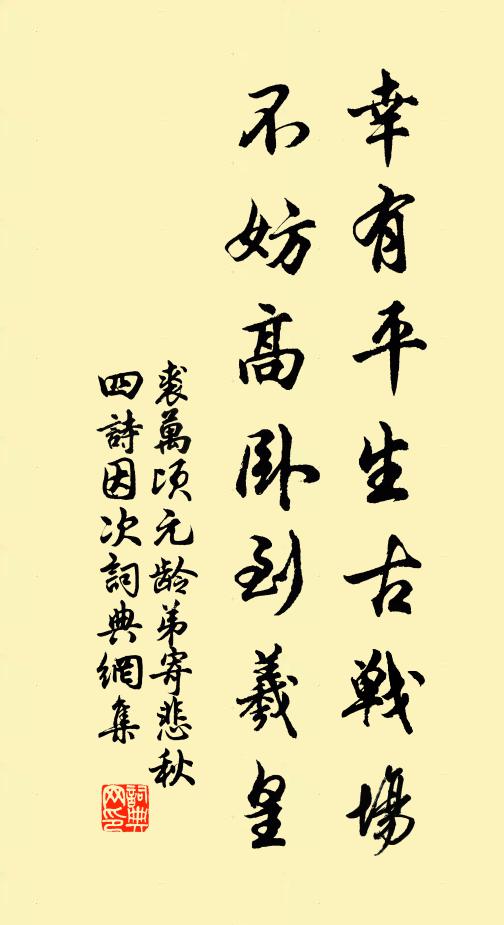 幸有平生古戦場
不妨高卧到羲皇
裘萬頃元龄弟寄悲秋
四詩因次詞典網集
詞典
网印